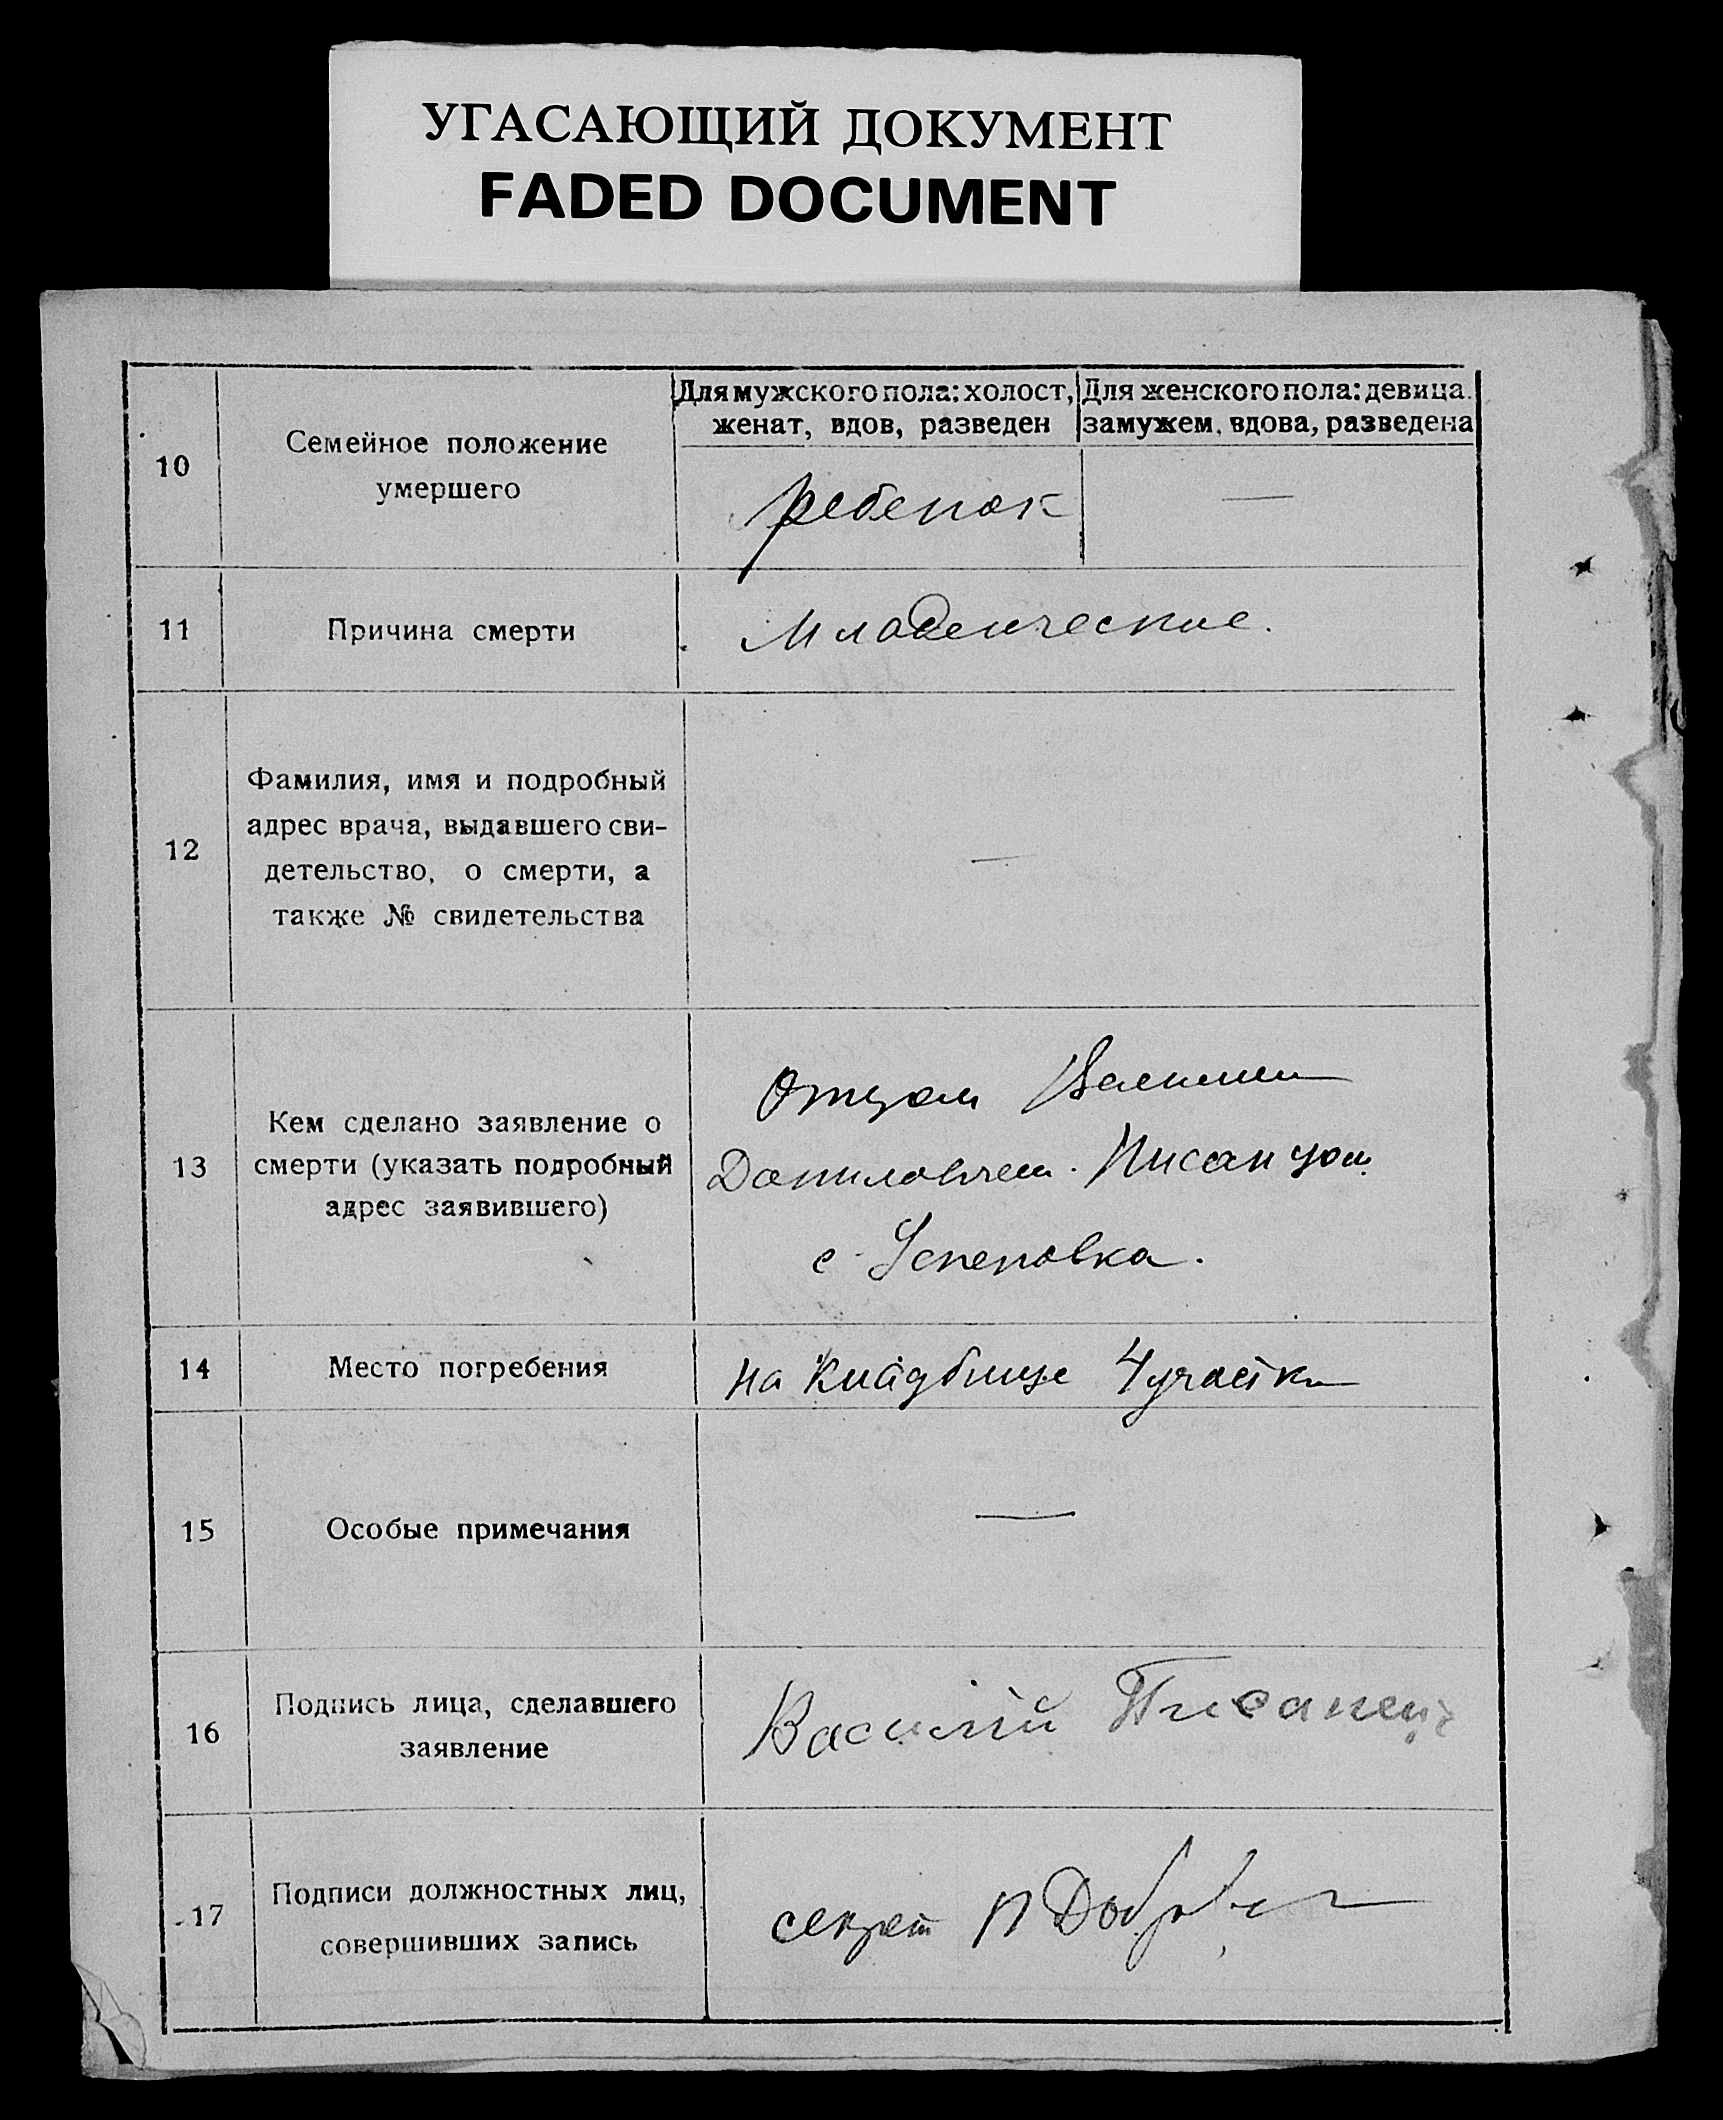 УГАСАЮЩИЙ ДОКУМЕНТ
FADED DOCUMENT
10
Семейное положение
умершего
Для мужского пола: холост,
женат, вдов, разведен
Для женского пола: девица.
замужем, вдова, разведена
ребенок
—
11
Причина смерти
Младенческие.
12
Фамилия, имя и подробный
адрес врача, выдавшего сви-
детельство, о смерти, а
также № свидетельства
—
13
Кем сделано заявление о
смерти (указать подробный
адрес заявившего)
Отцом Василием
Даниловичем. Писанцом
с.
14
Место погребения
на кладбище 4 участка
15
Особые примечания
—
16
Подпись лица, сделавшего
заявление
Василий Писанец
17
Подписи должностных лиц,
совершивших запись
секрет П